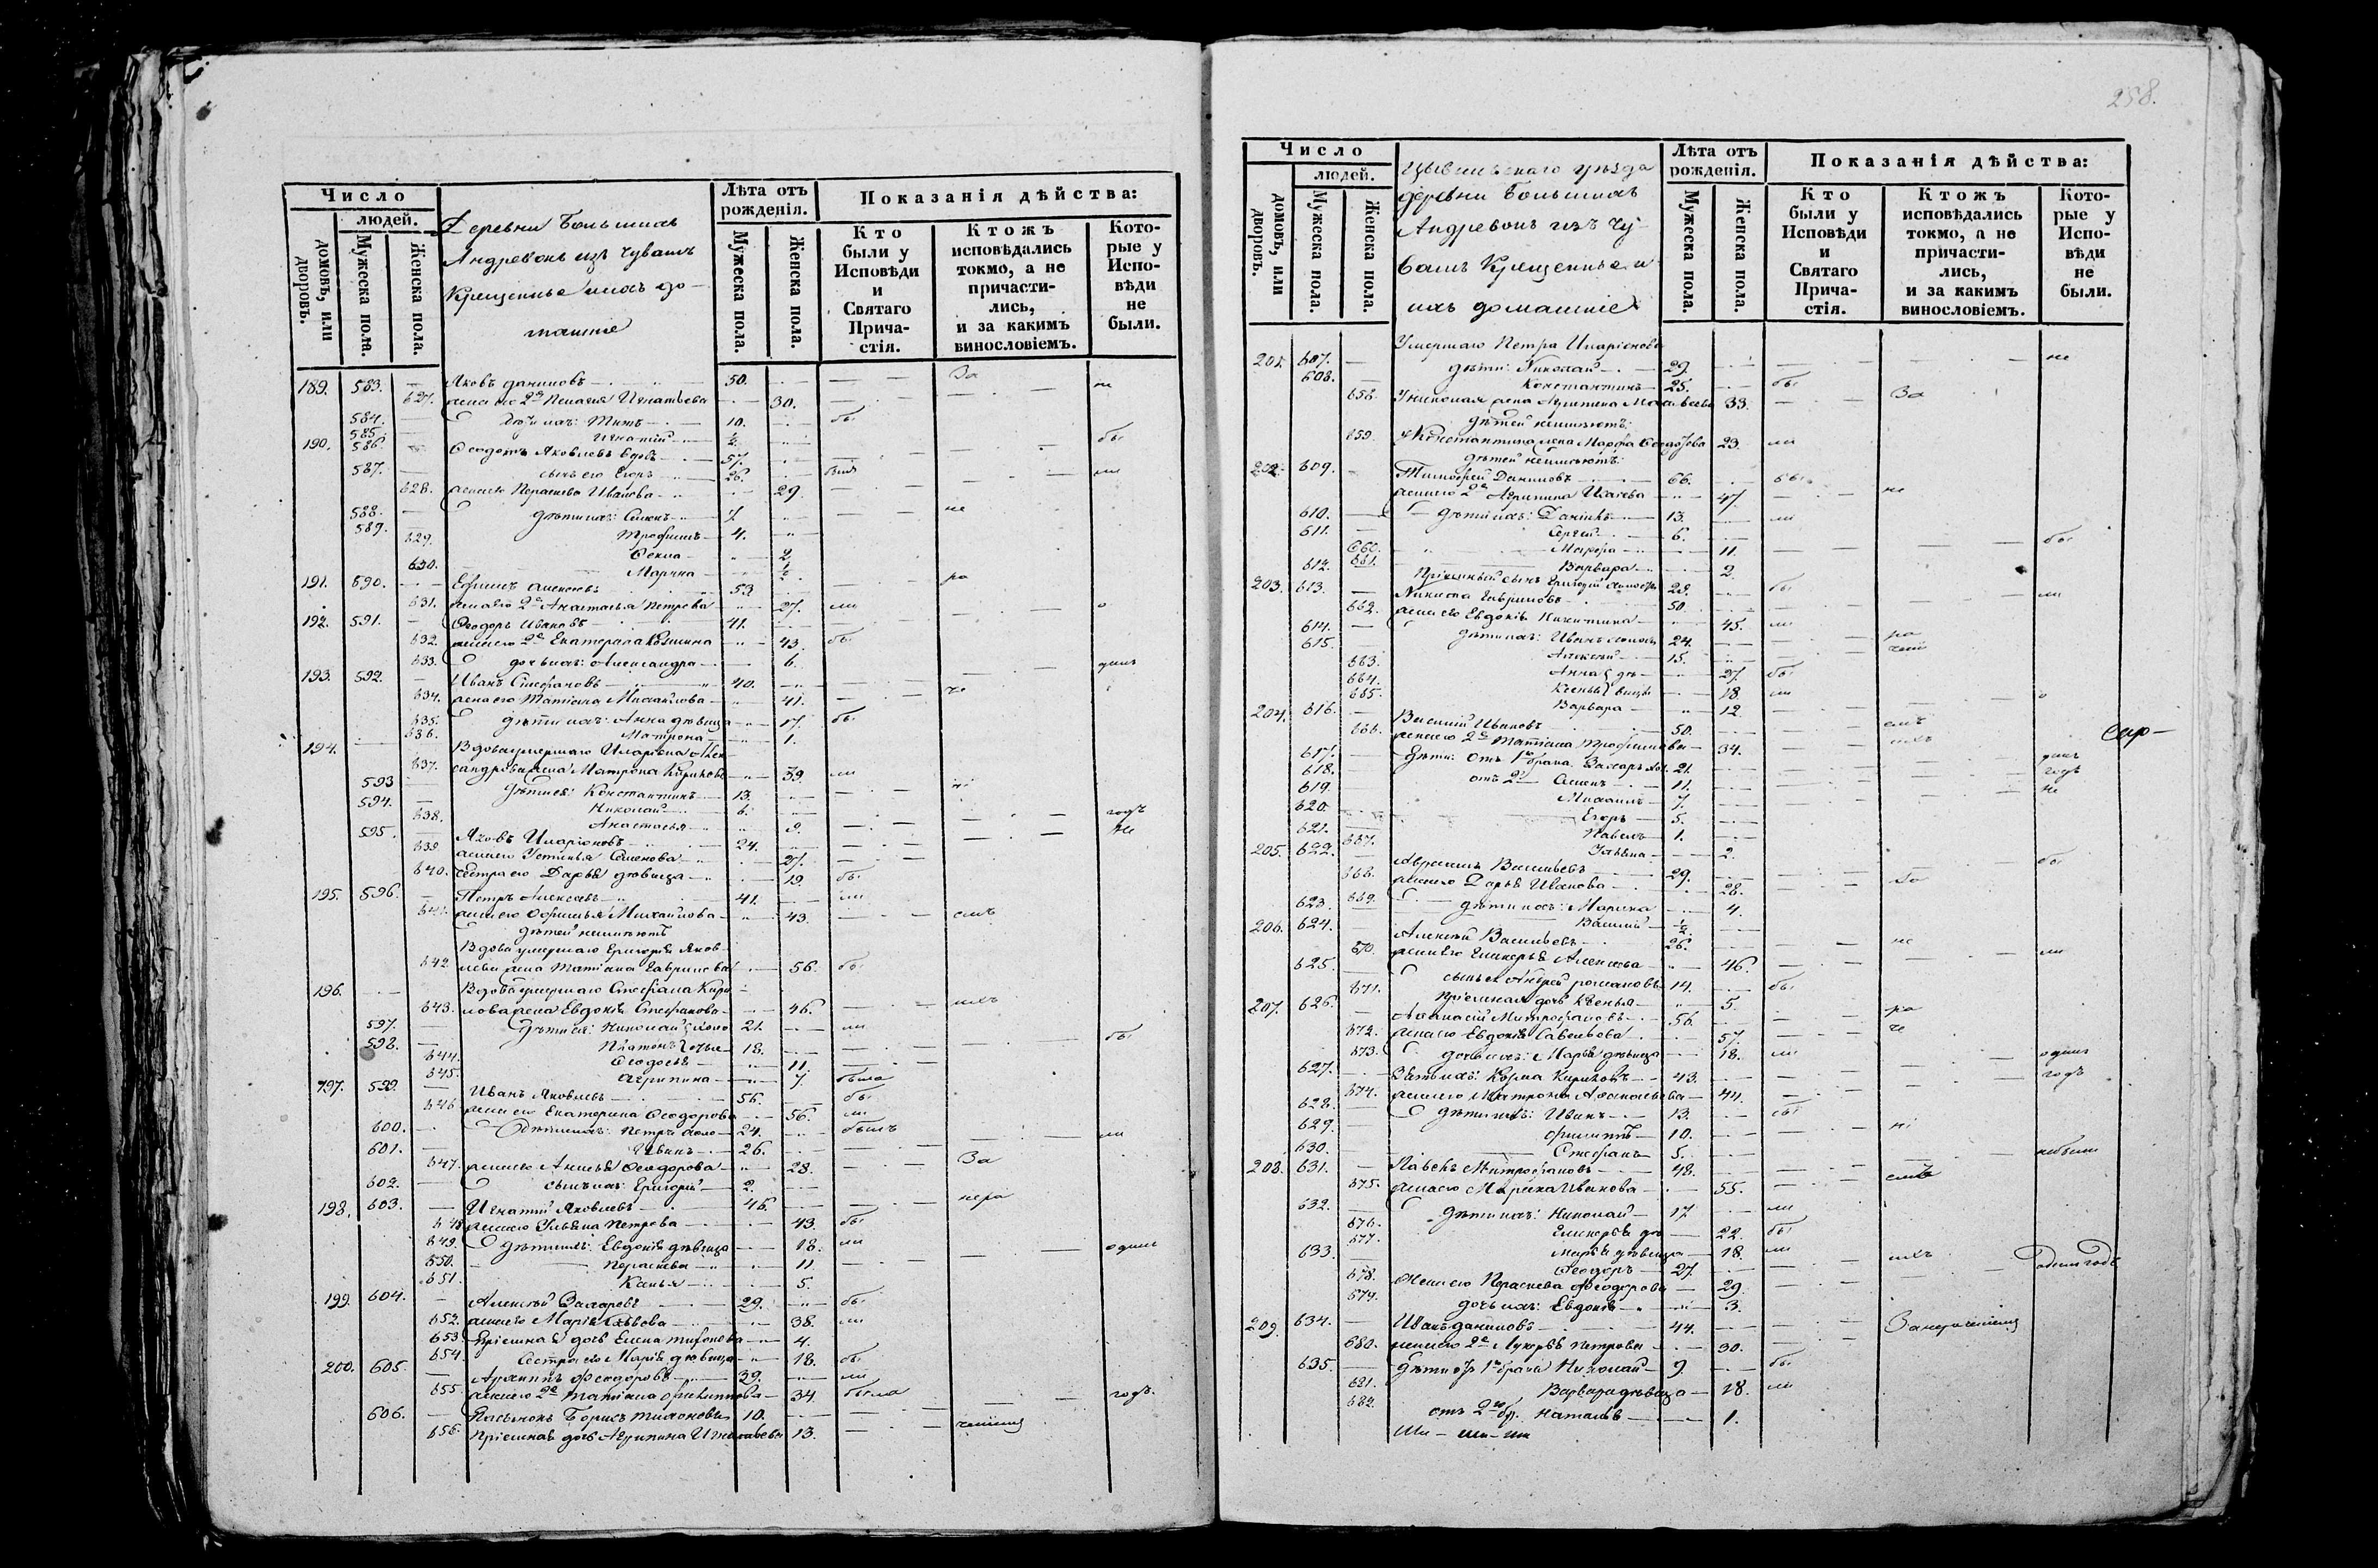 258.
Число
людей.
домовъ, или дворовъ.
Мужеска пола.
Женска пола.
Деревни Большихъ
Андревокъ изъ Чувашъ
Крещенные ихъ до-
машние
Лѣта отъ рожденія.
Мужеска пола.
Женска пола.
Показанія дѣйства:
Кто были у Исповѣди и Святаго Прича-стія.
Ктожъ исповѣдались токмо, а не причасти-лись, и за какимъ винословіемъ.
Кото-рые у Испо-вѣди не были.
189. 583. Яковъ Даниловъ 50. За
627. жена его 2я Пелагея Игнатьева 30. не
584. дети ихъ: Титъ 10. бы
585. Игнатий ½
190. 586. Ѳеодотъ Яковлевъ вдовъ 57. бы
587. сынъ его Егоръ 26.
628. жена его Параскева Иванова 29. ли
588. дѣти ихъ: Семенъ 7. не
589. Трофимъ 4.
629. Ѳекла 2.
630. Марина ½
191. 590. Ефимъ Алексеевъ 53. ра
631. жена его 2я Анастасья Петрова 27. ли
192. 591. Ѳеодоръ Ивановъ 41.
632. жена его 2я Екатерина Козмина 43. бы
633. дочь ихъ: Александра 6.
193. 592. Иванъ Стефановъ 40.
634. жена его Татіана Михайлова 41.
635. дѣти ихъ: Анна дѣвица 17. бы
636. Матрона 1.
194. Вдова умершаго Иларіона Алек-
637. сандрова жена Матрона Кирилова 39. ли
593. дѣти ея: Константинъ 13.
594. Николай 6.
638. Анастасья 9. годъ
595. Яковъ Иларіоновъ 24. не
639. жена его Устинья Семенова 27.
640. сестра его Дарья дѣвица 19. бы
195. 596. Петръ Алексѣевъ 41. ли
641. жена его Офимья Михайлова 43.
дѣтей неимѣютъ
Вдова умершаго Григорья Яков-
642. лева жена Татіана Гаврилова 56. бы
196. Вдова умершаго Стефана Кири-
643. лова жена Евдокія Стефанова 46.
597. дѣти ея: Николай холо 21. ли
598. Платонъ 18. бы
644. Ѳеодосья 11.
645. Агрипина 7. была
197. 599. Иванъ Яковлевъ 56. бы
646. жена его Екатерина Ѳеодорова 56. ли
600. дѣти ихъ: Петръ холо 24. былъ
601. Иванъ 26. ли
647. жена его Анисья Ѳеодорова 28. За
602. сынъ ихъ: Григорій 2.
198. 603. Игнатій Яковлевъ 46. нера
648. жена его Ульяна Петрова 43. бы
649. дѣти ихъ: Евдокія дѣвица 18. ли
650. Параскева 11. одинъ
651. 5.
199. 604. Алексѣй Захаровъ 29. бы
652. жена его Марія Львова 38. ли
653. Пріемная дочь Елена 4.
654. Сестра его Марія дѣвица 18. бы
200. 605. Архипъ Ѳеодоровъ 39. ли
655. жена его 2я Татіана Филиппова 34. была годъ.
606. Пасынокъ Борисъ Тихоновъ 10.
656. Пріемная дочь Агрипина Игнатьева 13.
Число
людей.
домовъ, или дворовъ.
Мужеска пола.
Женска пола.
Цывильскаго уѣзда
деревни Большихъ
Андревокъ изъ Чу-
вашъ Крещенные и
ихъ домашніе
Лѣта отъ рожденія.
Мужеска пола.
Женска пола.
Показанія дѣйства:
Кто были у Исповѣди и Святаго Прича-стія.
Ктожъ исповѣдались токмо, а не причасти-лись, и за какимъ винословіемъ.
Кото-рые у Испо-вѣди не были.
Умершаго Петра Иларіонова
201. 607. дѣти: Николай 29. не
608. Константинъ 25. бы
658. У Николая жена Агрипина Матвѣева 33. За
дѣтей неимѣютъ:
659. у Константина жена Марфа Ѳедотова 23. ли
дѣтей неимѣютъ:
202. 609. Тимофей Даниловъ 66. бы
жена его 2я Агрипина Исаева 47. не
610. дѣти ихъ: Даніилъ 13. ли
611. Сергей 6.
660. Марфа 11. бы
661. Варвара 2.
612. Пріемный сынъ Григорій 23. бы
203. 613. Никита Гавриловъ 50. ли
662. жена его Евдокія Никитина 45. ли
614. дѣти ихъ: Иванъ холо 24. ра
615. Алексѣй 15.
663. Анна дѣ- 27. бы
664. Ксенья вицы 18. ли
665. Варвара 12.
204. 616. Василий Ивановъ 50.
666. жена его 2я Татіана Трофимова 34.
617. дѣти: отъ 1го брака: Захаръ хол. 21. одинъ
618. отъ 2го Семенъ 11. годъ
619. Михаилъ 7. не
620. Егоръ 5.
621. Павелъ 1.
667. Ульяна 2.
205. 622. Абрамъ Васильевъ 29. бы
668. жена его Дарья Иванова 28. За
669. дѣти ихъ: Марина 4.
623. Василий ½
206. 624. Алексѣй Васильевъ 26. не
670. жена его Гликерья Алексеева 46. ли
625. сынъ ея Андрей Романовъ 14. бы
671. Пріемная дочь Ксенья 5.
207. 626. Аѳанасій Митрофановъ 56. ра
672. жена его Евдокія Савельева 57.
673. дочь ихъ: Марья дѣвица 18. ли одинъ
627. Зять ихъ: Козма Кириловъ 43. годъ
674. жена его Матрона Аѳанасьева 44.
628. дѣти ихъ: Иванъ 13. бы
629. Филиппъ 10.
630. Стефанъ 5.
208. 631. Павелъ Митрофановъ 48.
675. жена его Марина Иванова 55.
632. дѣти ихъ: Николай 17. ли
676. Гликерья дѣ 22. бы
677. Марья дѣвица 18. ли
633. Ѳеодоръ 27.
678. Жена его Параскева Ѳеодорова 29.
679. дочь ихъ: Евдокія 3.
209. 634. Иванъ Даниловъ 44.
680. жена его 2я Лукерья Петрова 30.
635. дѣти отъ 1го брака Николай 9. бы
681. Варвара дѣвица 18. ли
682. отъ 2го бр. Наталья 1.